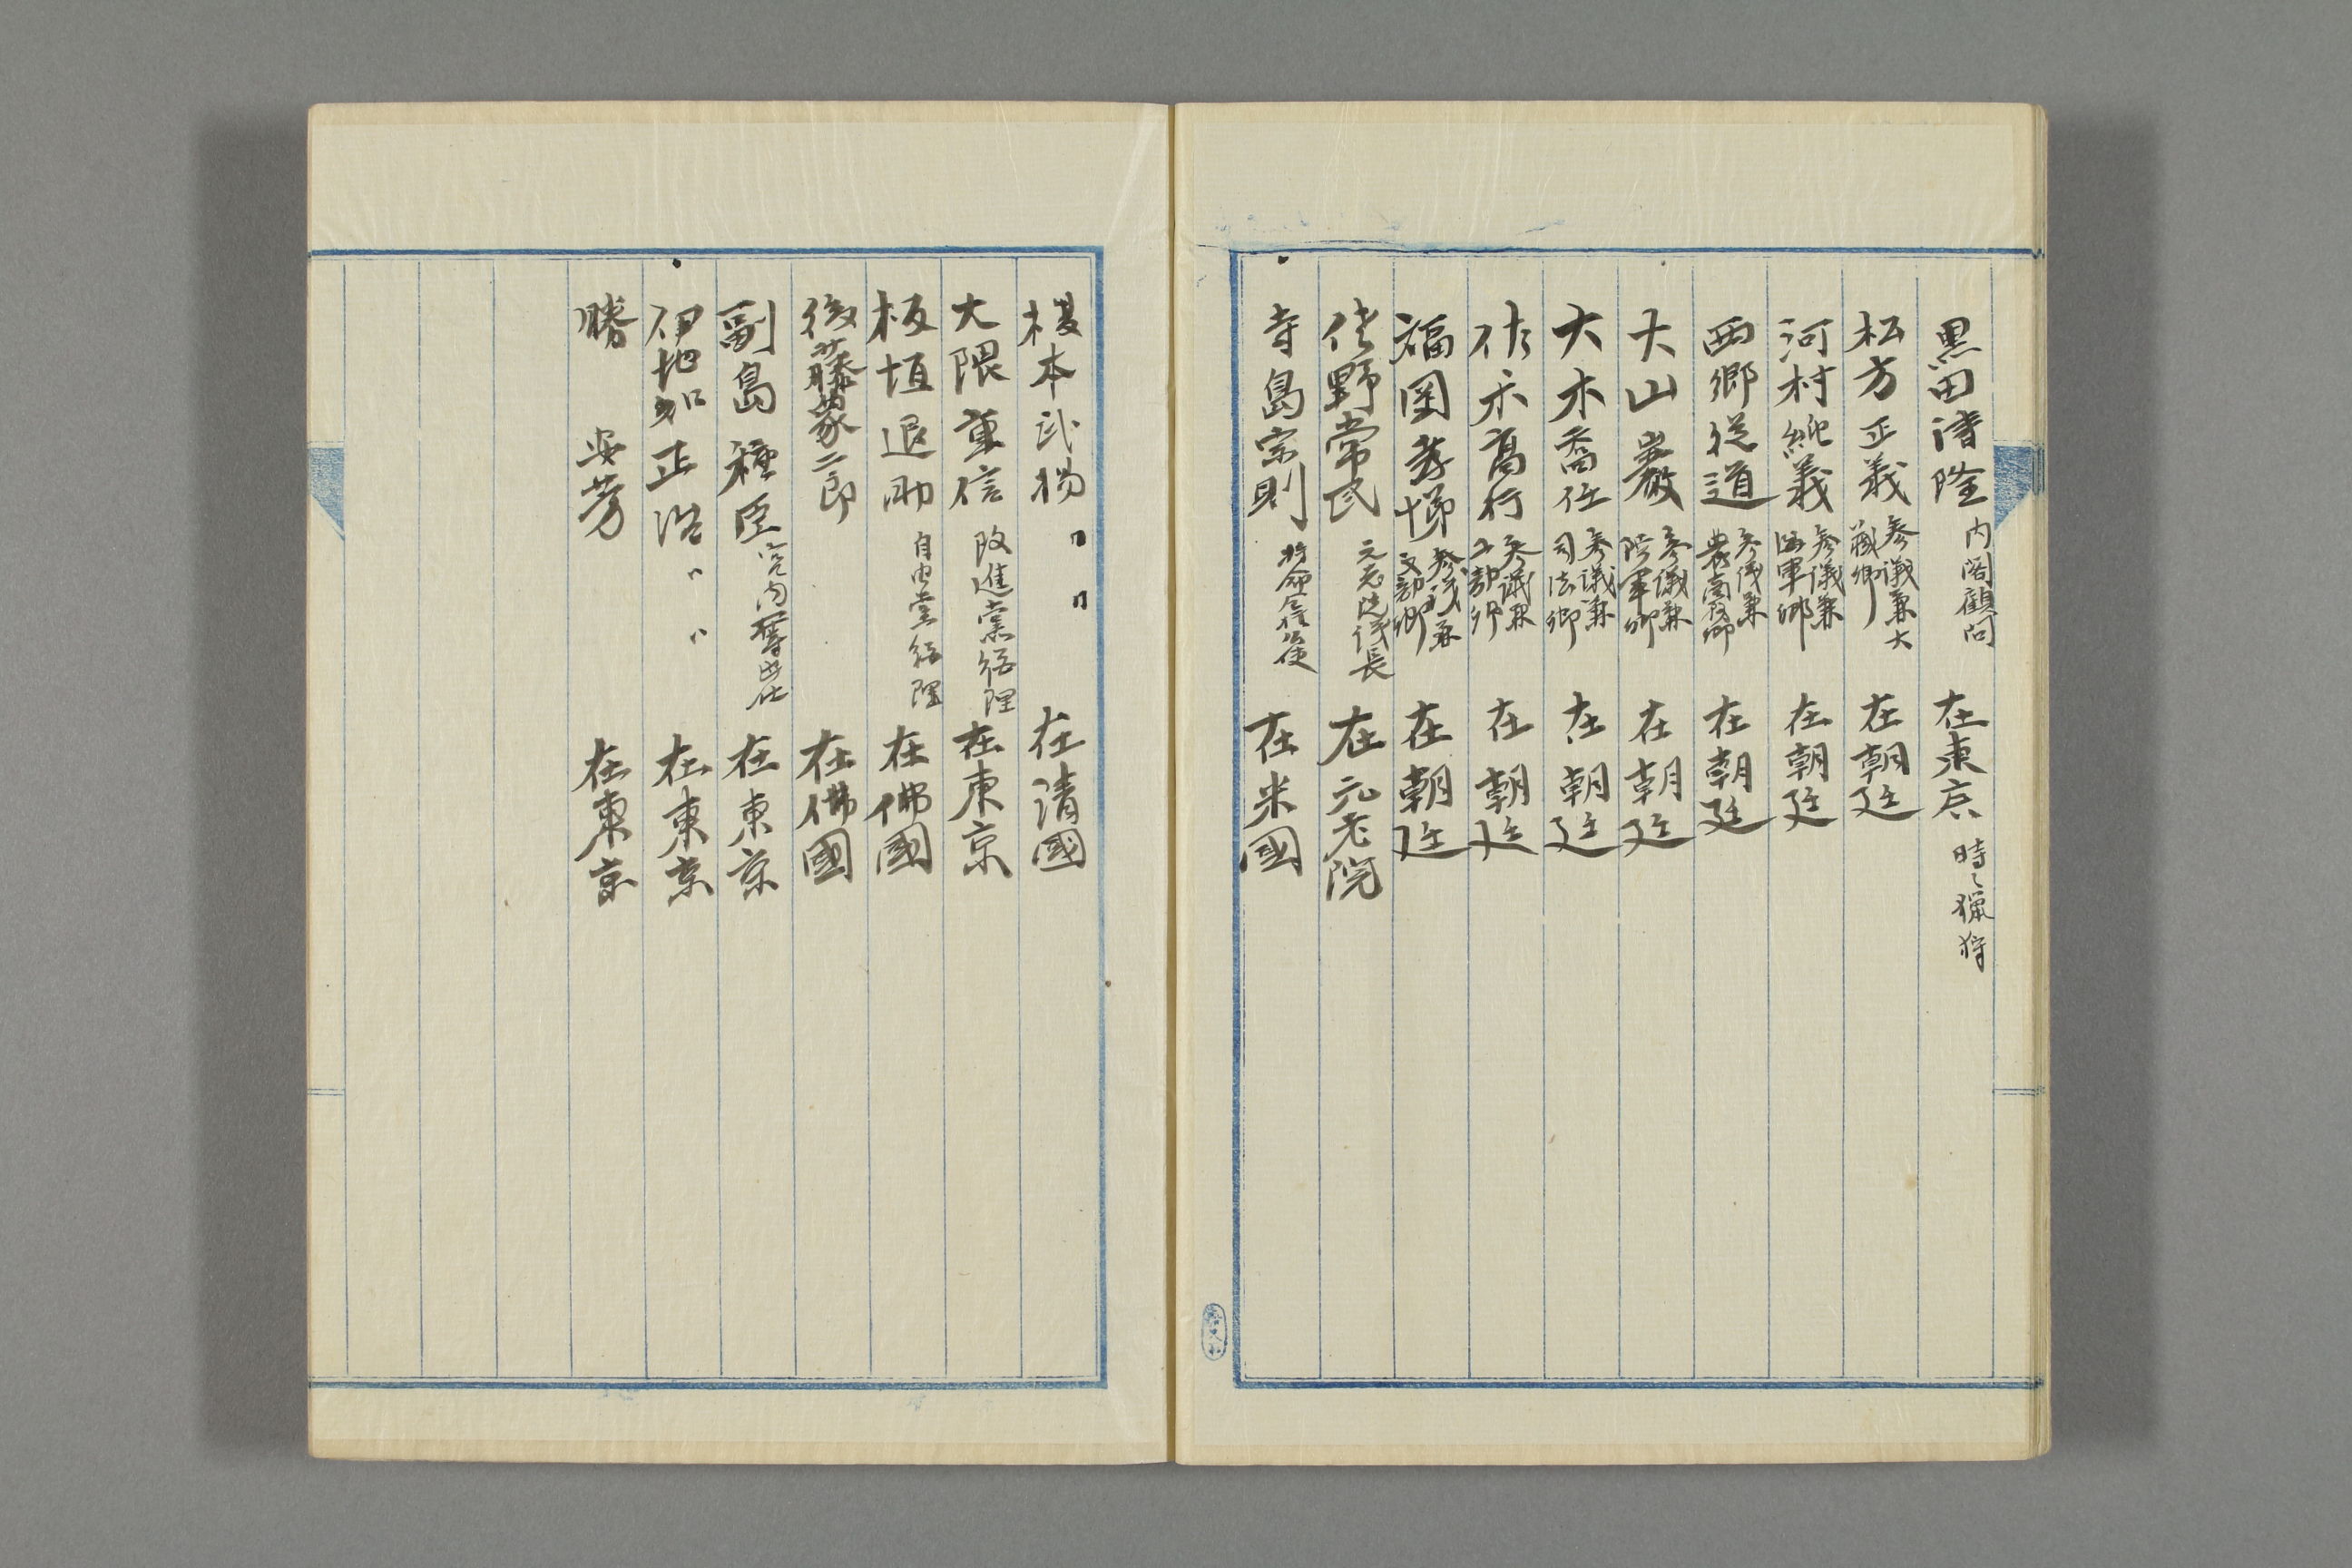 黒田清隆 内閣顧問 在東京 時々猟狩
松方正義 参議兼大蔵卿 在朝廷
河村純義 参議兼海軍卿 在朝廷
西郷従道 参議兼農商務卿 在朝廷
大山巌 参議兼陸軍卿 在朝廷
大木喬任 参議兼司法卿 在朝廷
佐々木高行 参議兼工部卿 在朝廷
福岡孝悌 参議兼文部卿 在朝廷
佐野常民 元老院議長 在元老院
寺島宗則 特命全権公使 在米國
榎本武揚 〃 〃 在清國
大隈重信 改進黨総理 在東京
板垣退助 自由黨総理 在佛國
後藤象二郎 在佛國
副島種臣 宮内 在東京
伊地知正治 〃 〃 在東京
勝安芳 在東京